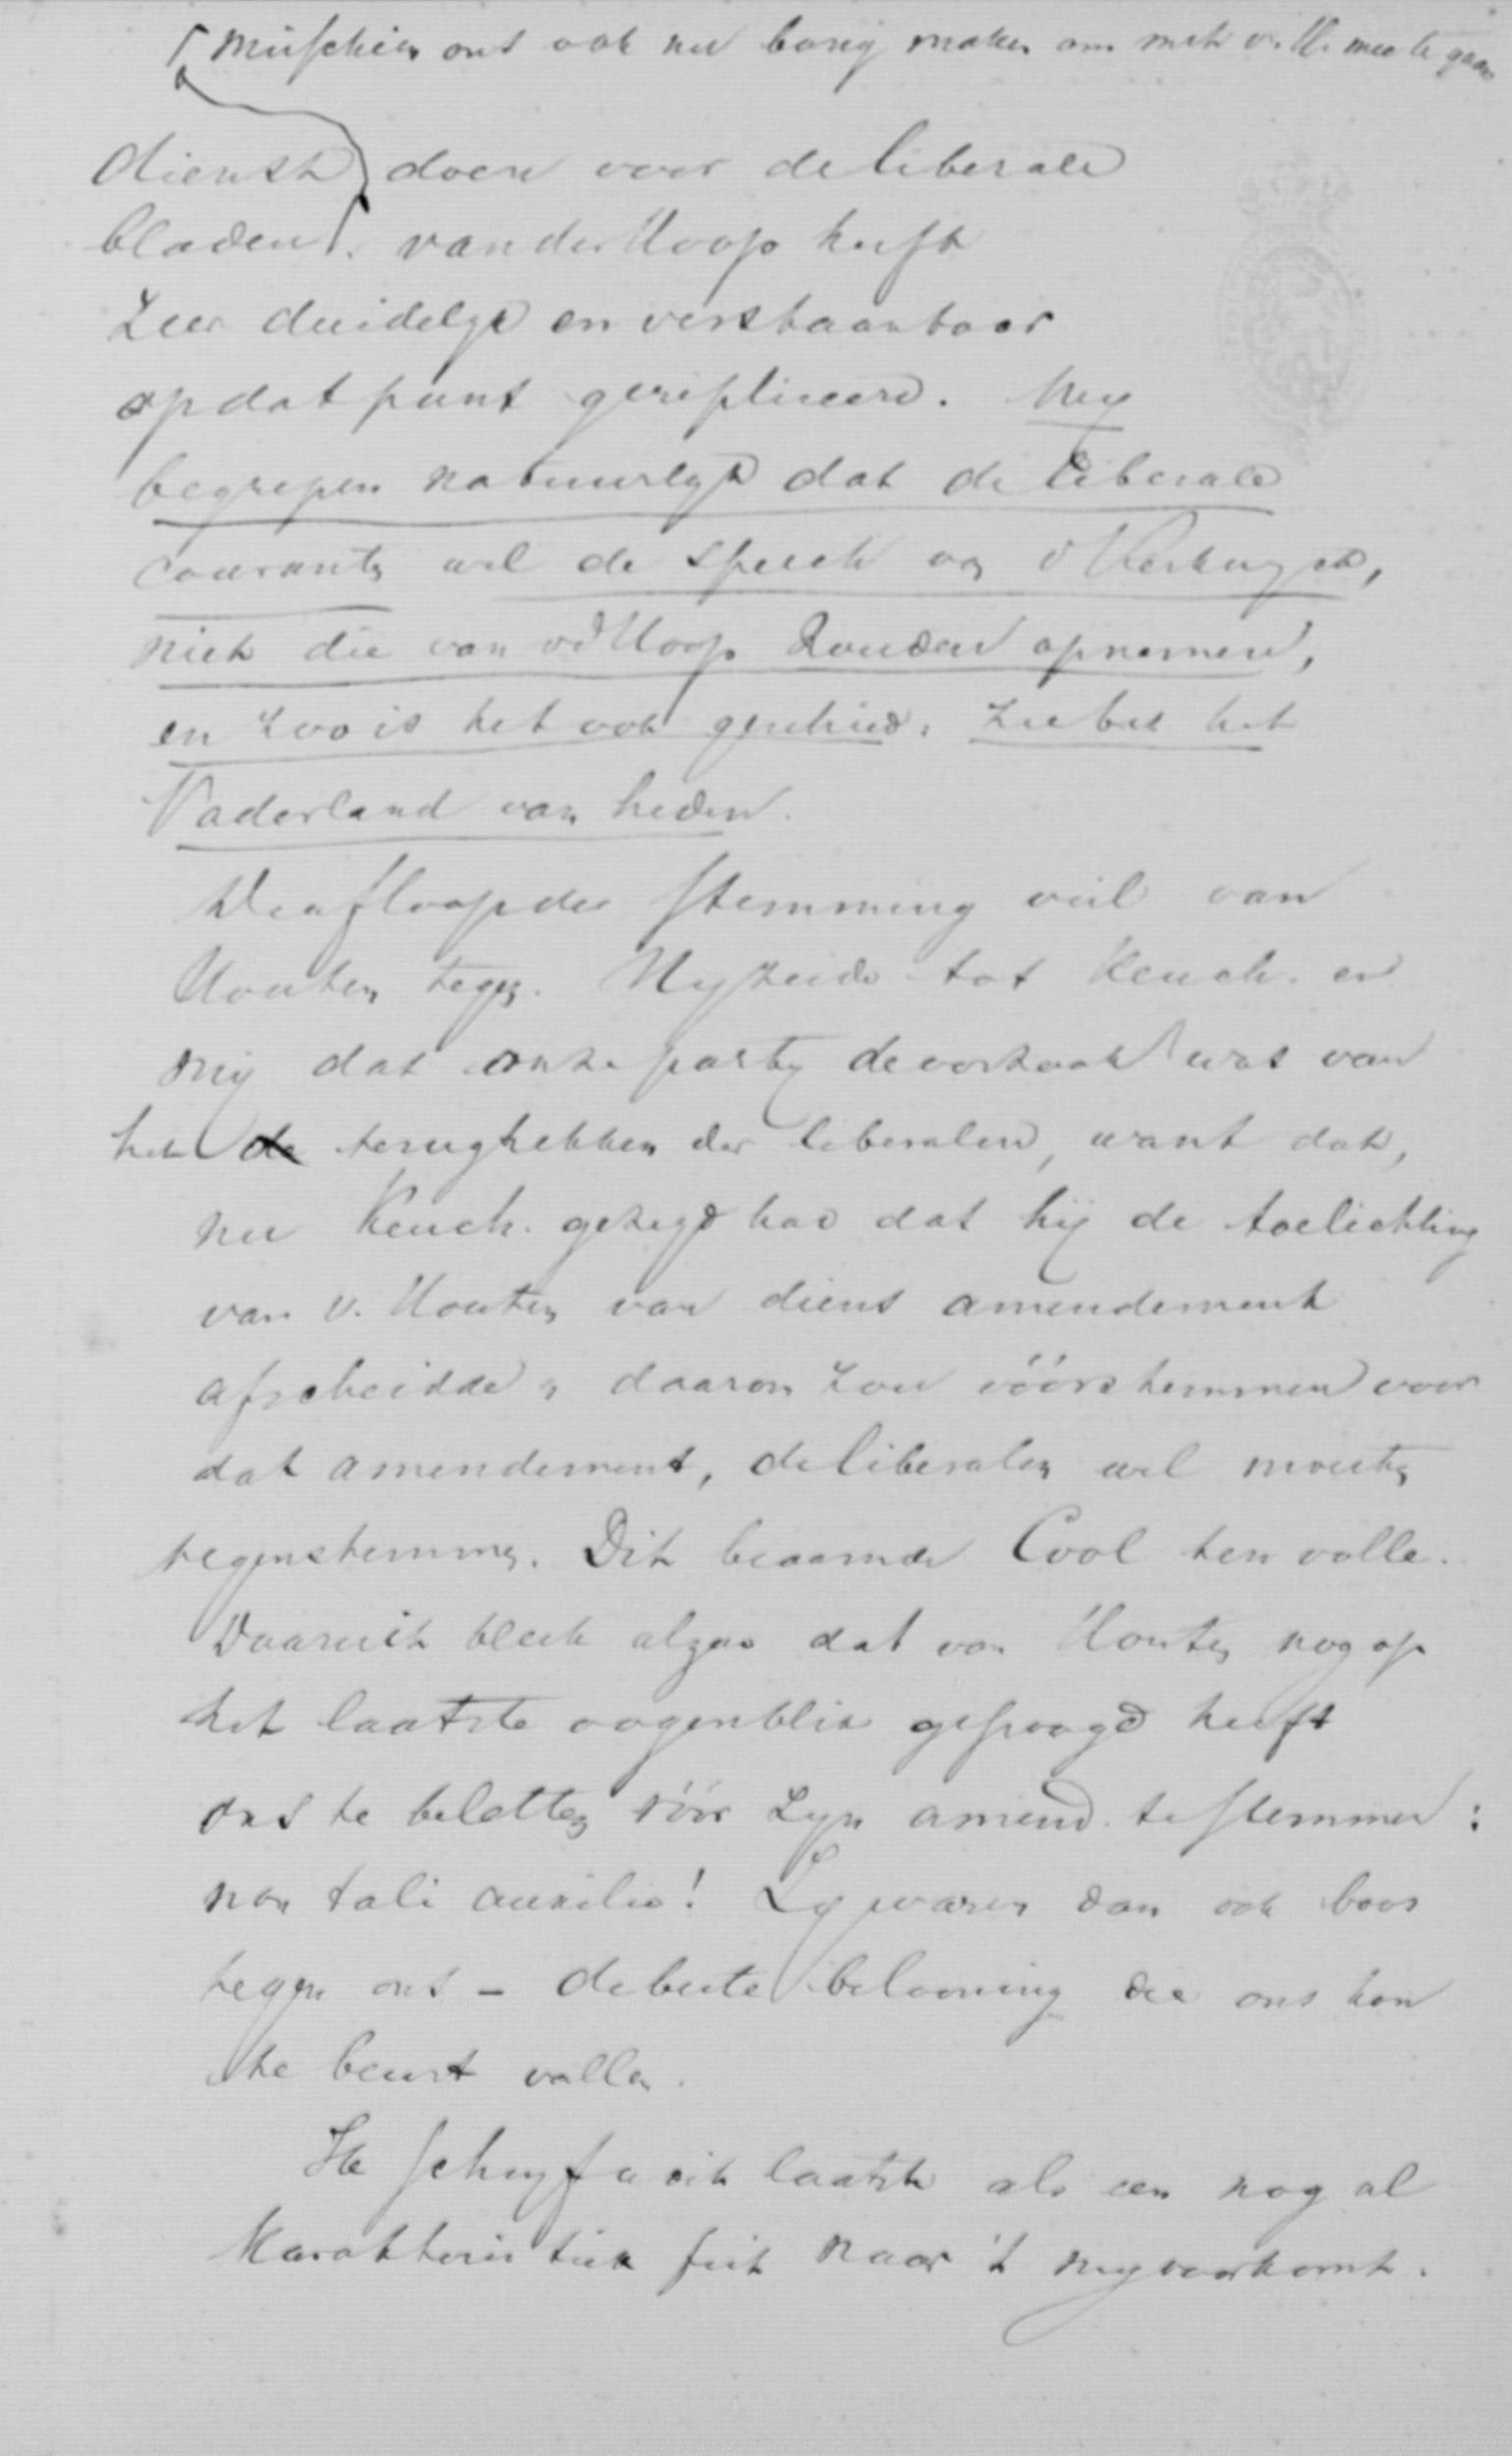 misschien ons ook nu bang maken om met v. H. mee te gaan
dienst doen voor de liberale
bladen. van der Hoop heeft
zeer duidelyk en verstaanbaar
op dat punt gerepliceerd. Wy
begrepen natuurlyk dat de liberale
couranten wel de speech van v Kerkwyk,
niet die van vd Hoop zouden opnemen,
en zoo is het ook geschied. Zie bet het
Vaderland van heden.
De afloop der stemming viel van
Houten tegen. Hy zeide tot Keuch. en
my dat onze party de oorzaak was van
het de terugtrekken der liberalen, want dat,
nu Keuch. gezegd had dat hij de toelichting
van v. Houten van diens amendement
afscheidde & daarom zou vóórstemmen voor
dat amendement, de liberalen wel moesten
tegenstemmen. Dit beaamde Cool ten volle.
Daaruit bleek alzoo dat van Houten nog op
het laatste oogenblik gepoogd heeft
ons te beletten vóór zyn amend. te stemmen:
non tali auxilio! Zy waren dan ook boos
tegen ons - de beste belooning die ons kon
te beurt vallen.
Ik schryf u dit laatste als een nog al
karakteristiek feit naar 't my voorkomt.